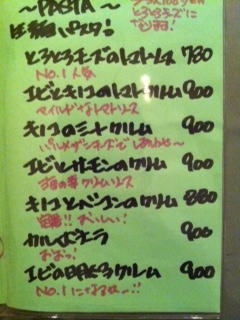 ～PASTA～
生麺パスタ!
とろとろチーズのトマトソース 780
NO.1人気
エビとキノコのトマトクリーム 900
マイルドなトマトソース
キノコのミートクリーム 900
パルメザンチーズで しあわせ～
エビとサーモンのクリーム 900
海の幸 クリームソース
キノコとベーコンのクリーム 880
定番!! おいしい!
カルボナーラ 900
エビの明太子クリーム 900
NO.1になるかー!!